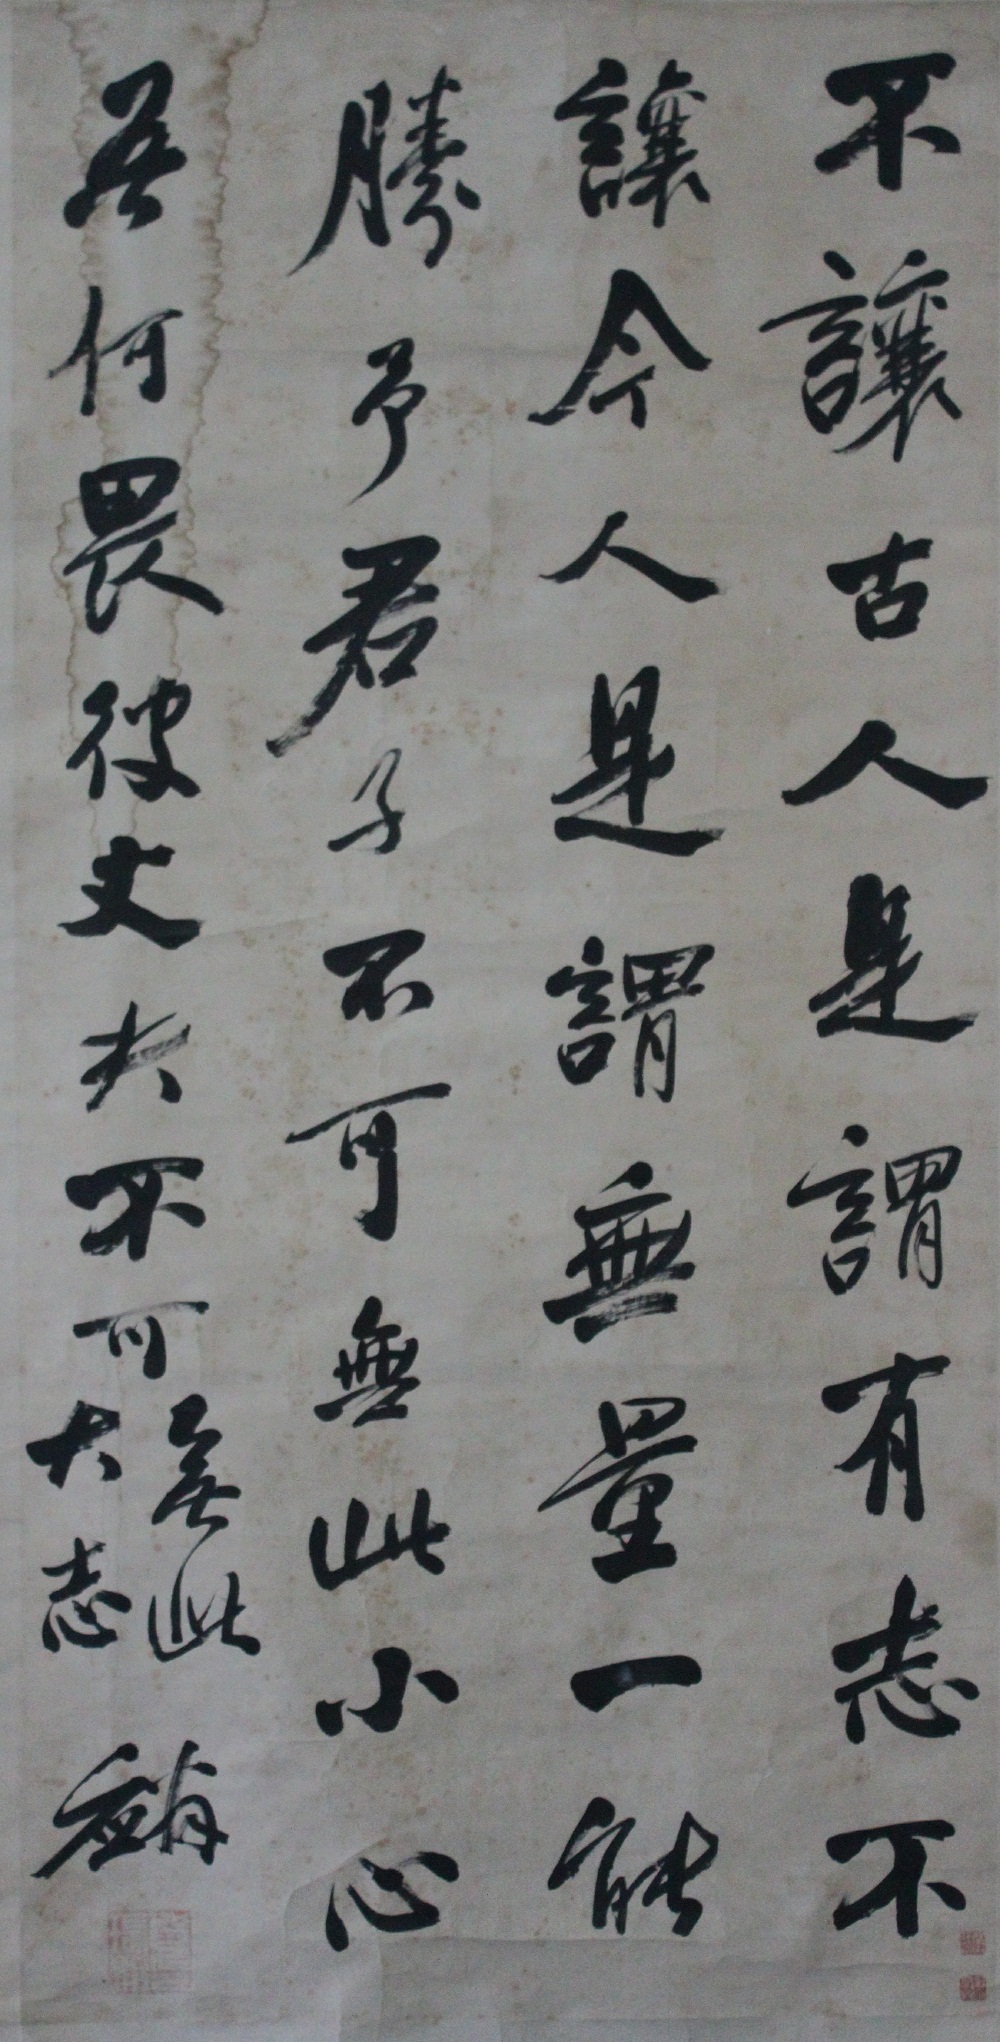 不讓古人是謂有志不
讓今人是謂無量一能
勝予君子不可無此小心
吾何畏彼丈夫不可無此
大志